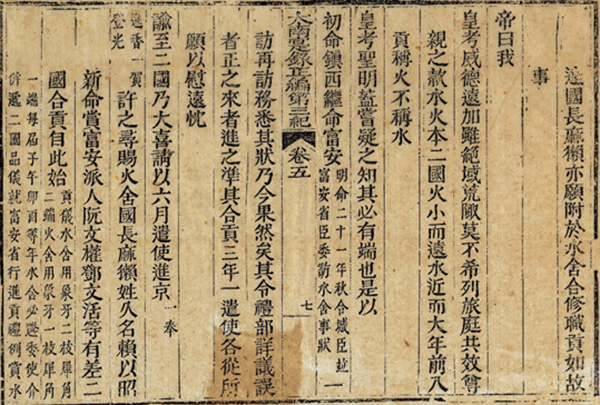 國長麻獺亦願附於水舍合修職貢如故
事
帝曰我
皇考威德遠加雖絕域荒陬莫不希列旅庭共效尊
親之款水火本二國火小而遠水近而大年前入
貢稱火不稱水
皇考聖明蓋嘗疑之知其必有端也是以
初命鎮西繼命富安
明命二十一年秋合城臣
富安省臣委訪水舍事狀
一
大南寔錄正編第三紀 卷五 七
訪再訪務悉其狀乃今果然矣其令禮部詳議誤
者正之來者進之準其合貢三年一遣使各從所
願以慰遠忱
諭至二國乃大喜請以六月遣使進京
一奉
進香一賀
登光
許之尋賜火舍國長麻獺姓久名賴以昭
新命賞富安派人阮文權鄧文活等有差二
國合貢自此始
貢儀水舍用象牙二枝犀角
二端火舍用象牙一枝犀角
一端每屆子午卯酉等年水舍必委使介
併遞二國品儀就富安省行進貢禮例賞水